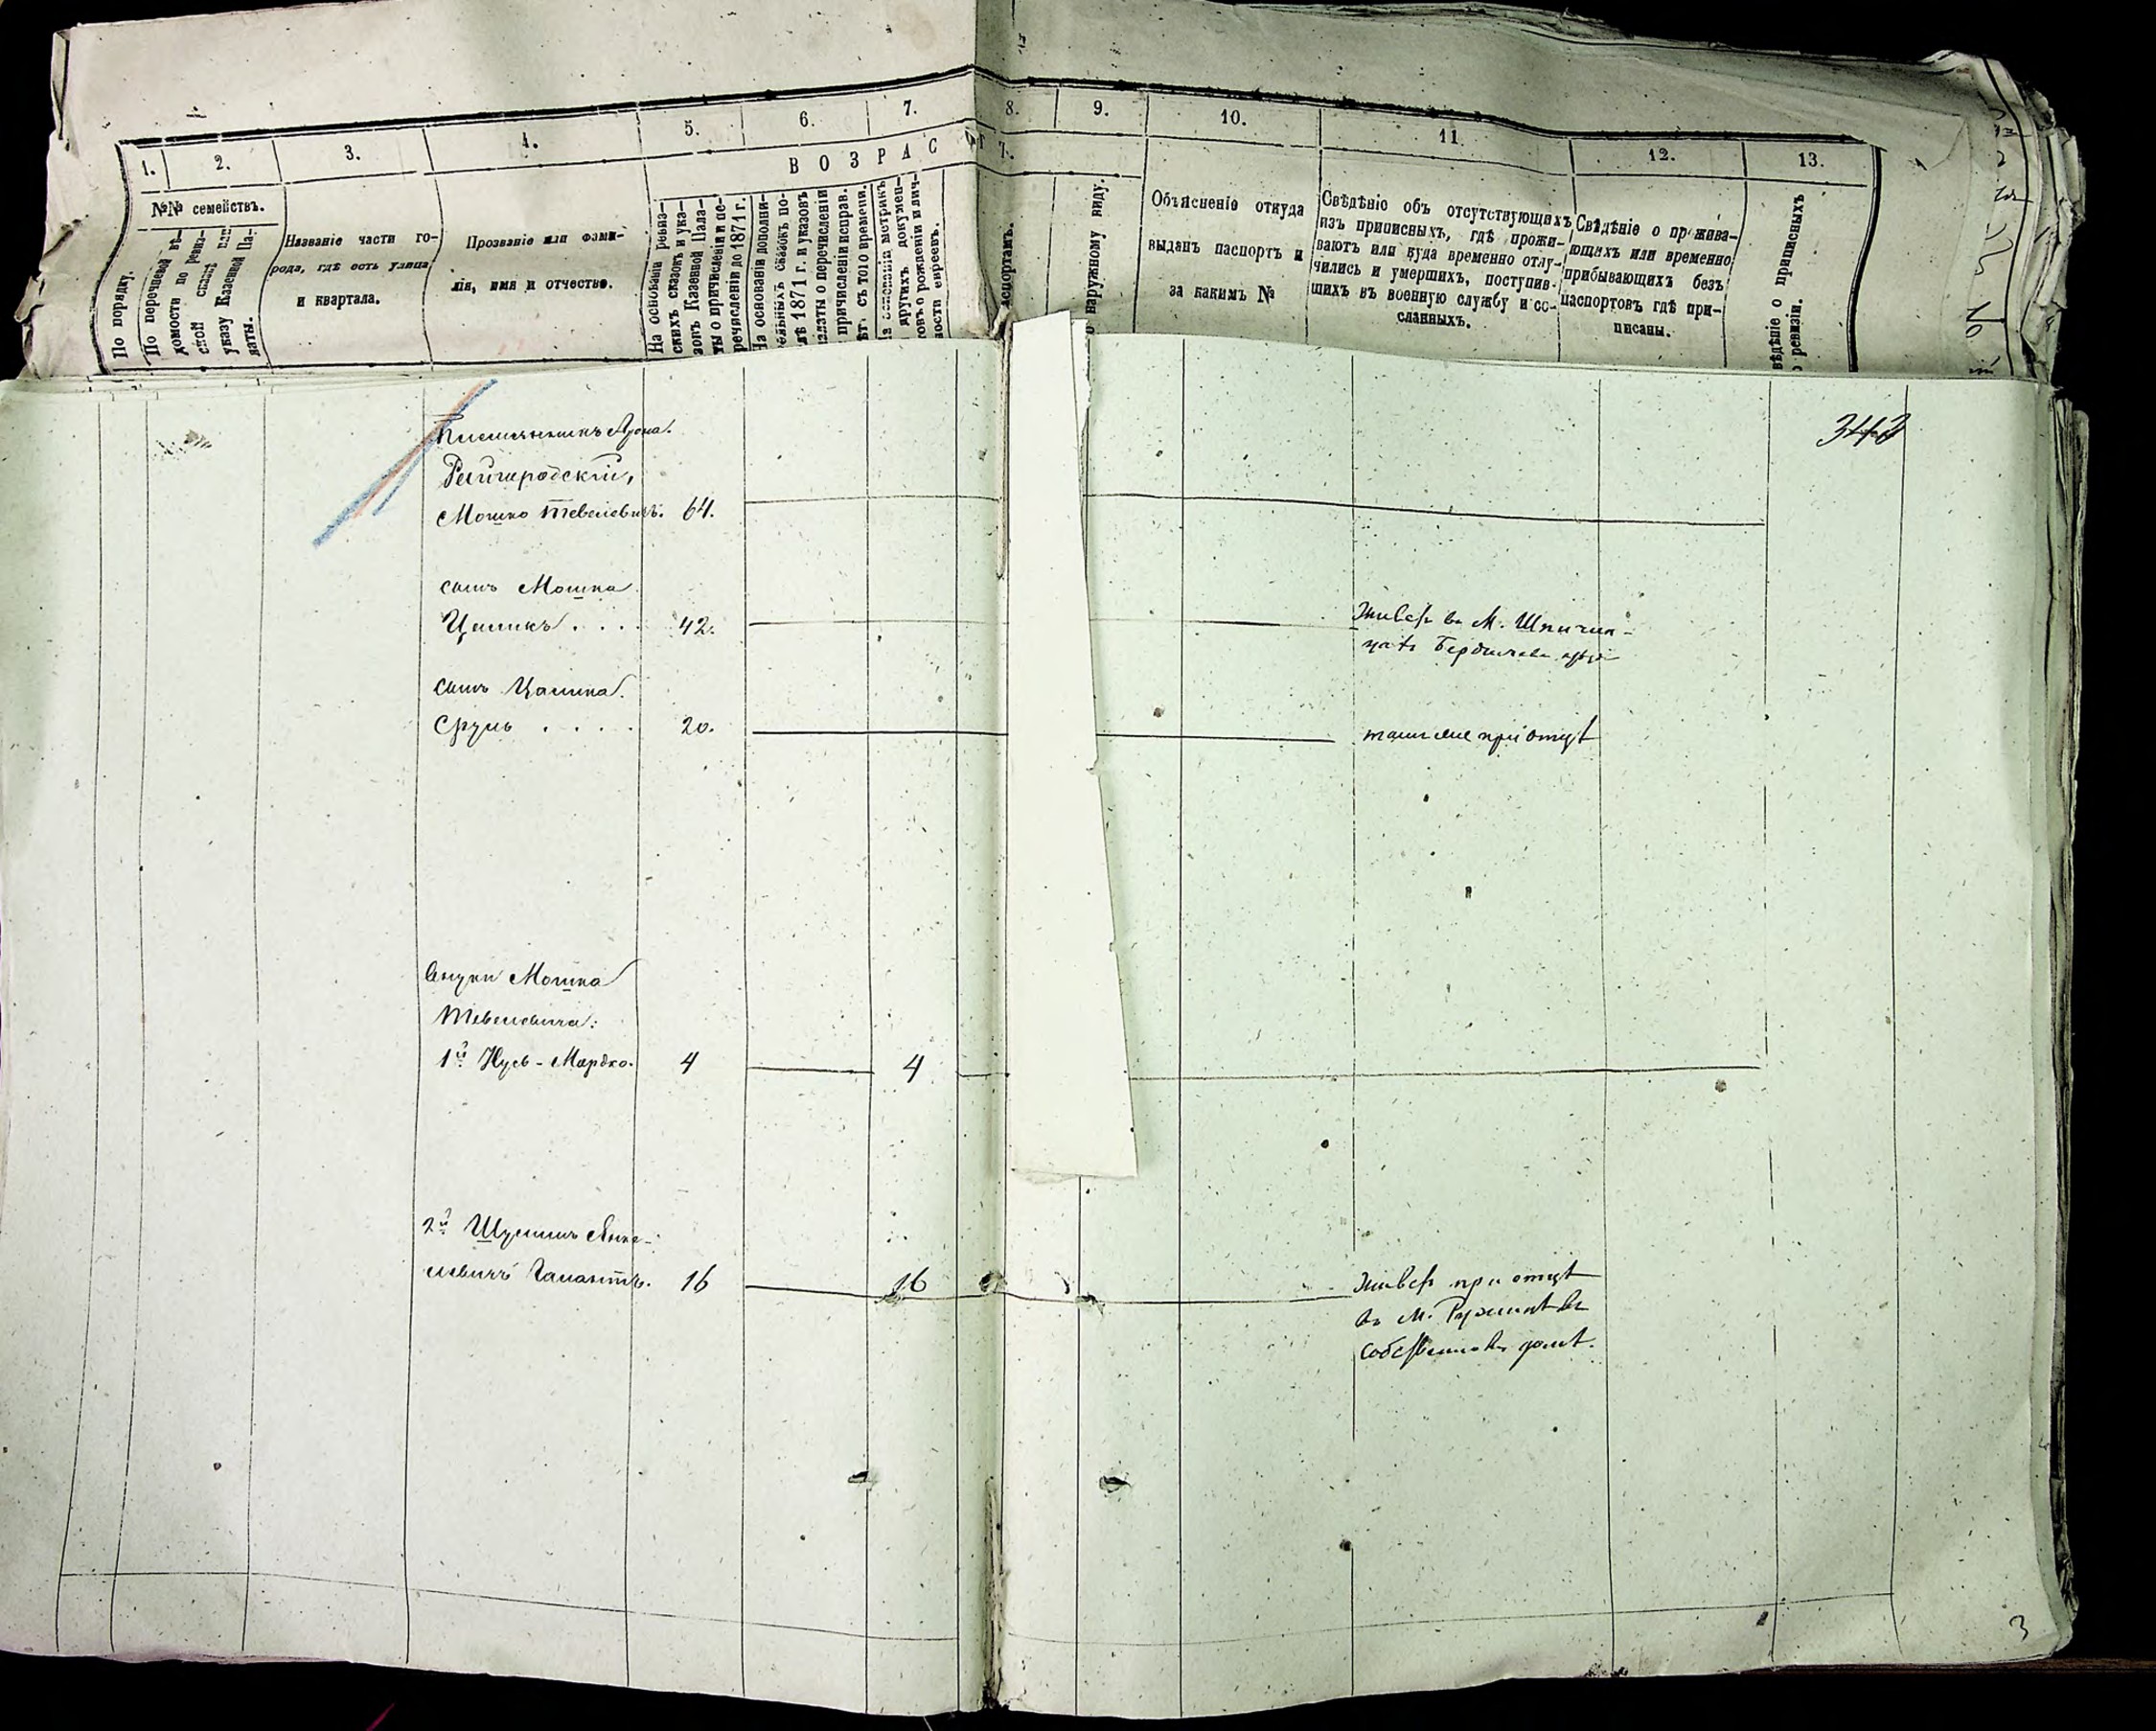 1.
2.
3.
4.
5.
6.
7.
8.
9.
10.
11.
12.
13.
ВОЗРАСТЪ.
№№ семействъ.
По порядку.
По перечневой вѣ-
домости по ревиз-
ской сказкѣ или
указу Казенной Па-
латы.
Названіе части го-
рода, гдѣ есть улица
и квартала.
Прозваніе или фами-
лія, имя и отчество.
На основаніи ревиз-
скихъ сказокъ и ука-
зовъ Казенной Пала-
ты о причисленіи и пе-
речисленіи до 1871 г.
На основаніи дополни-
тельныхъ сказокъ по-
слѣ 1871 г. и указовъ
палаты о перечисленіи
и причисленіи исправ.
лѣтъ съ того времени.
На основаніи метрикъ
и другихъ докумен-
товъ о рожденіи и лич-
ности евреевъ.
паспортамъ.
По наружному виду.
Объясненіе откуда
выданъ паспортъ и
за какимъ №
Свѣдѣніе объ отсутствующихъ
изъ приписныхъ, гдѣ прожи-
ваютъ или куда временно отлу-
чились и умершихъ, поступив-
шихъ въ военную службу и со-
сланныхъ.
Свѣдѣніе о прожива-
ющихъ или временно
прибывающихъ безъ
паспортовъ гдѣ при-
писаны.
Свѣдѣніе о приписныхъ
по ревизіи.
No
343
Рейгеродскій,
Мошко Тевелевичъ. 64.
сынъ Мошка
Цаликъ . . . 42.
Живетъ въ М.
сынъ Цалика.
Сруль . . . . 20.
тамже при отцѣ
внуки Мошка
Тевелевича:
1й Нусь-Мордко. 4 4
2й Шулимъ Янке-
левичъ Талантъ. 16 16
Живетъ при отцѣ
въ М. Ружинѣ въ
собственномъ домѣ.
3